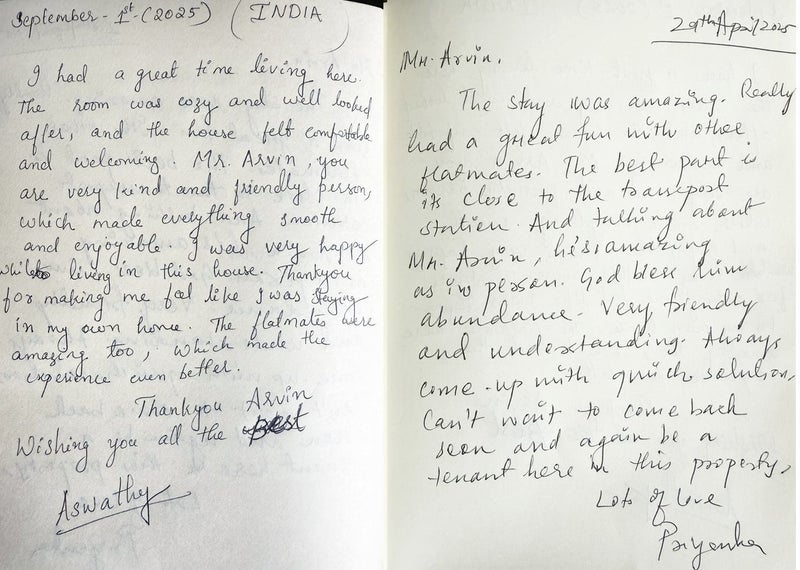 September - 1st - (2025) (INDIA)
I had a great time living here.
The room was cozy and well looked
after, and the house felt comfortable
and welcoming. Mr. Arvin, you
are very kind and friendly person,
which made everything smooth
and enjoyable. I was very happy
while living in this house. Thankyou
for making me feel like I was staying
in my own home. The flatmates were
amazing too, which made the
experience even better.
Thankyou Arvin
Wishing you all the best
Aswathy
29th April 2025
Mr. Arvin.
The stay was amazing. Really
had a great fun with other
flatmates. The best part is
its close to the transport
station. And talking about
Mr. Arvin, he's amazing
as in person. God bless him
abundance. Very friendly
and understanding. Always
come-up with quick solution,
Can't wait to come back
soon and again be a
tenant here in this property,
Lots of love
Priyenka